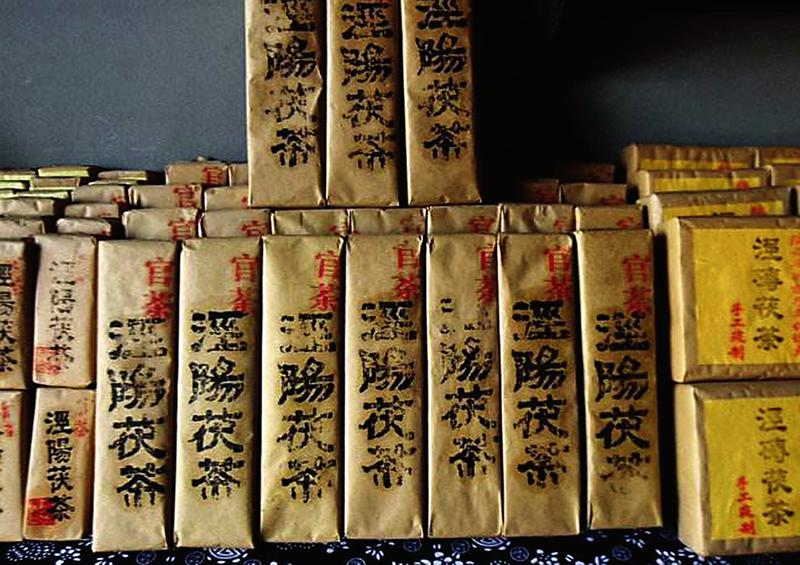 涇陽茯茶
涇陽茯茶
涇陽茯茶
官
官
官
官
官
官
官
涇陽茯茶
涇陽茯茶
官茶
涇陽茯茶
官茶
涇陽茯茶
官茶
涇陽茯茶
官茶
涇陽茯茶
官茶
涇陽茯茶
官茶
涇陽茯茶
官茶
涇陽茯茶
涇磚茯茶
手工
涇陽茯茶
涇磚茯茶
手工